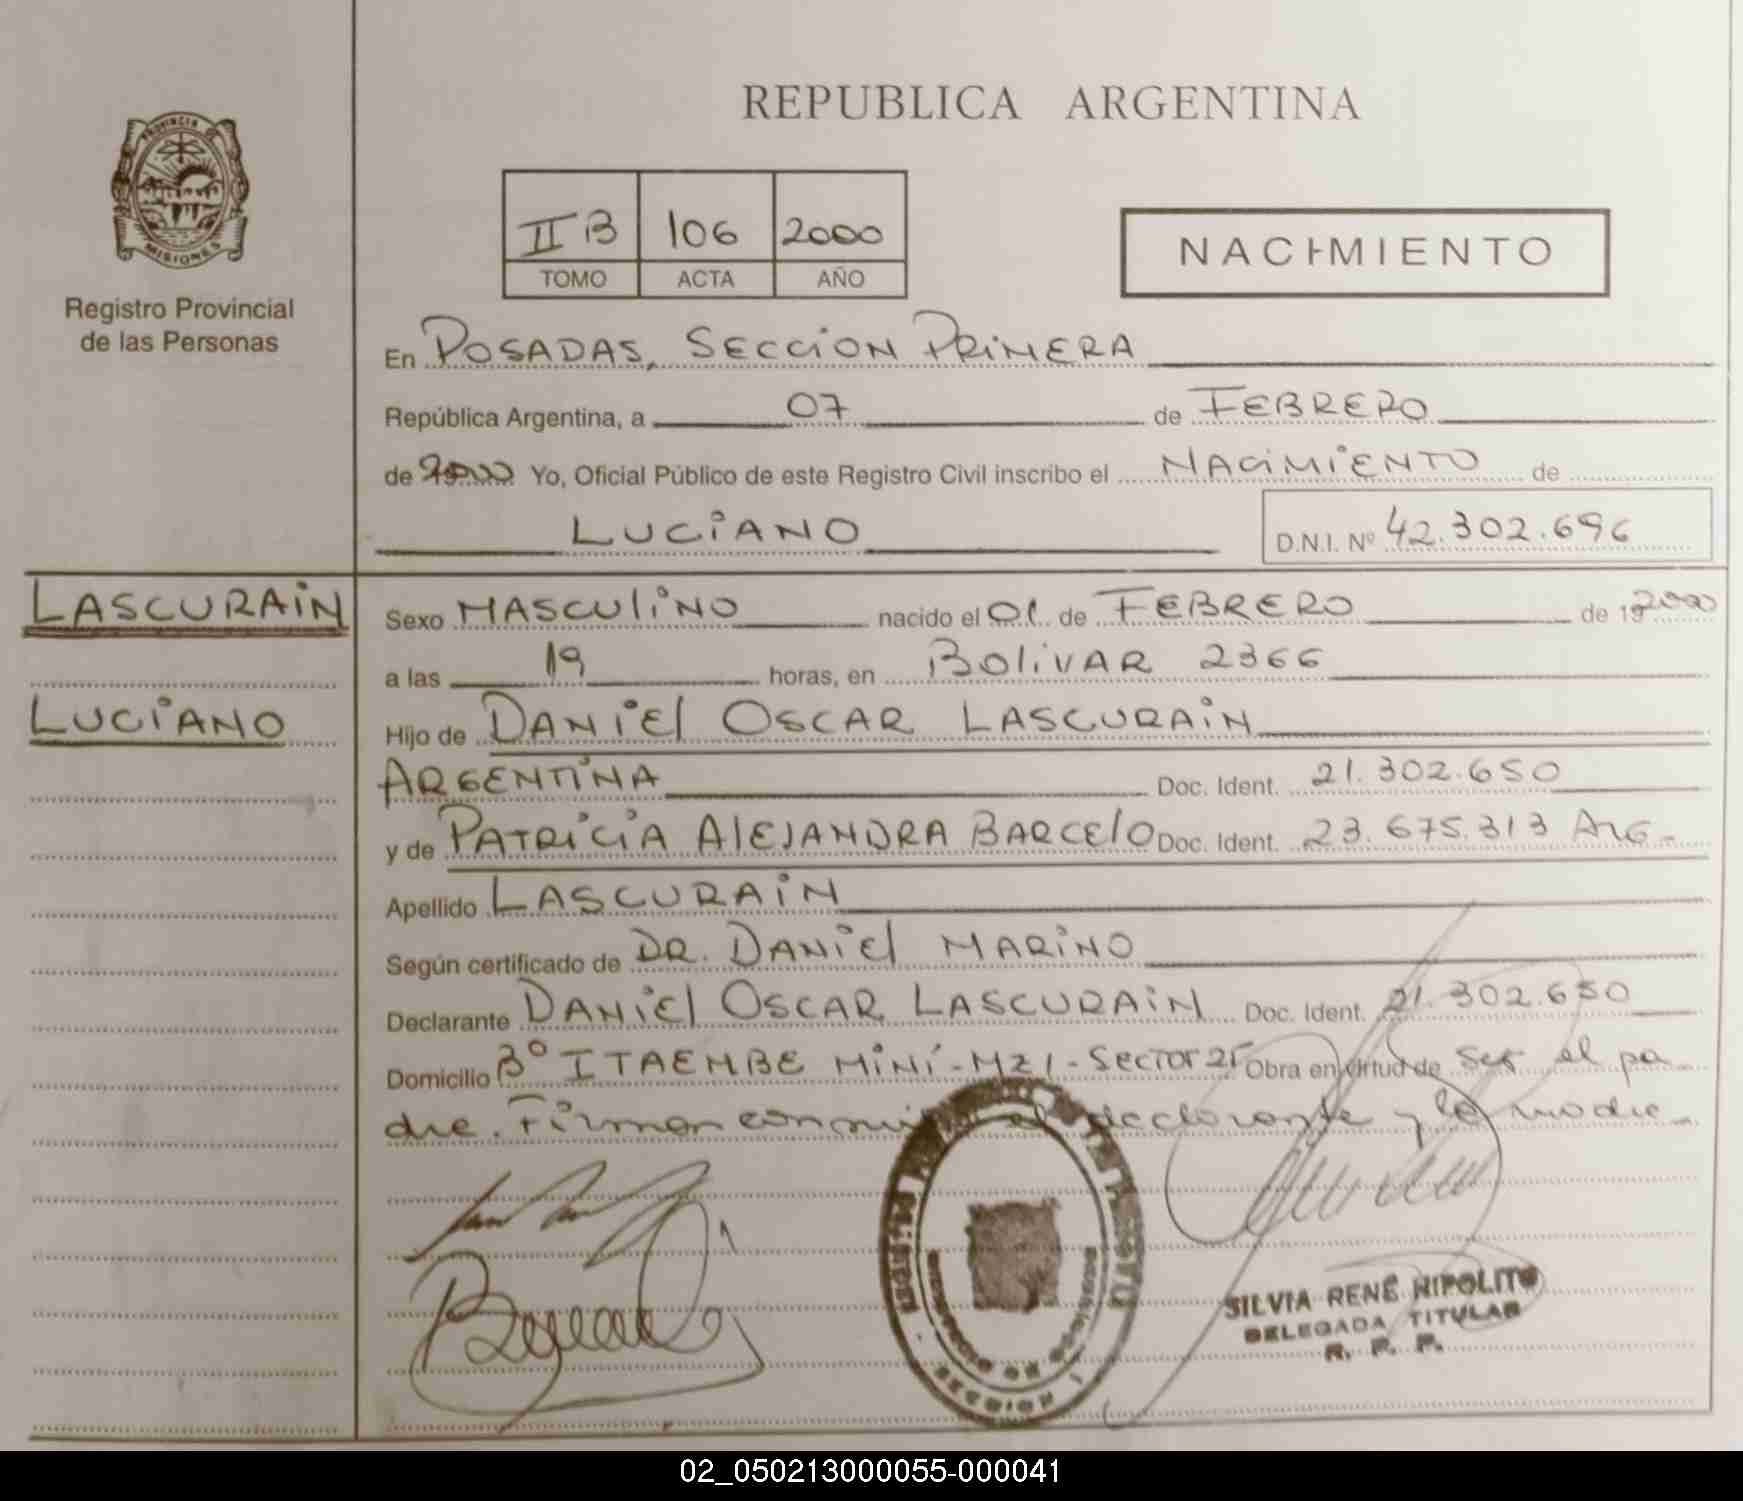 REPUBLICA ARGENTINA
PROVINCIA DE
MISIONES
Registro Provincial
de las Personas
II B 106 2000
TOMO ACTA AÑO
NACIMIENTO
En POSADAS, SECCION PRIMERA
República Argentina, a 07 de FEBRERO
de 2000 Yo, Oficial Público de este Registro Civil inscribo el NACIMIENTO de
LUCIANO D.N.I. Nº 42.302.696
LASCURAIN
Sexo MASCULINO nacido el 01 de FEBRERO de 19 2000
a las 19 horas, en BOLIVAR 2366
LUCIANO
Hijo de DANIEL OSCAR LASCURAIN
ARGENTINA Doc. Ident. 21.302.650
y de PATRICIA ALEJANDRA BARCELO Doc. Ident. 23.675.313 ARG.-
Apellido LASCURAIN
Según certificado de DR. DANIEL MARINO
Declarante DANIEL OSCAR LASCURAIN Doc. Ident. 21.302.650
Domicilio Bº ITAEMBE MINI-MZ1-SECTOR 25 Obra en virtud de ser el pa
dre. Firman conmigo el declarante y la madre
SILVIA RENÉ HIPOLITO
DELEGADA TITULAR
R. P. P.
SECCION 1
02_050213000055-000041